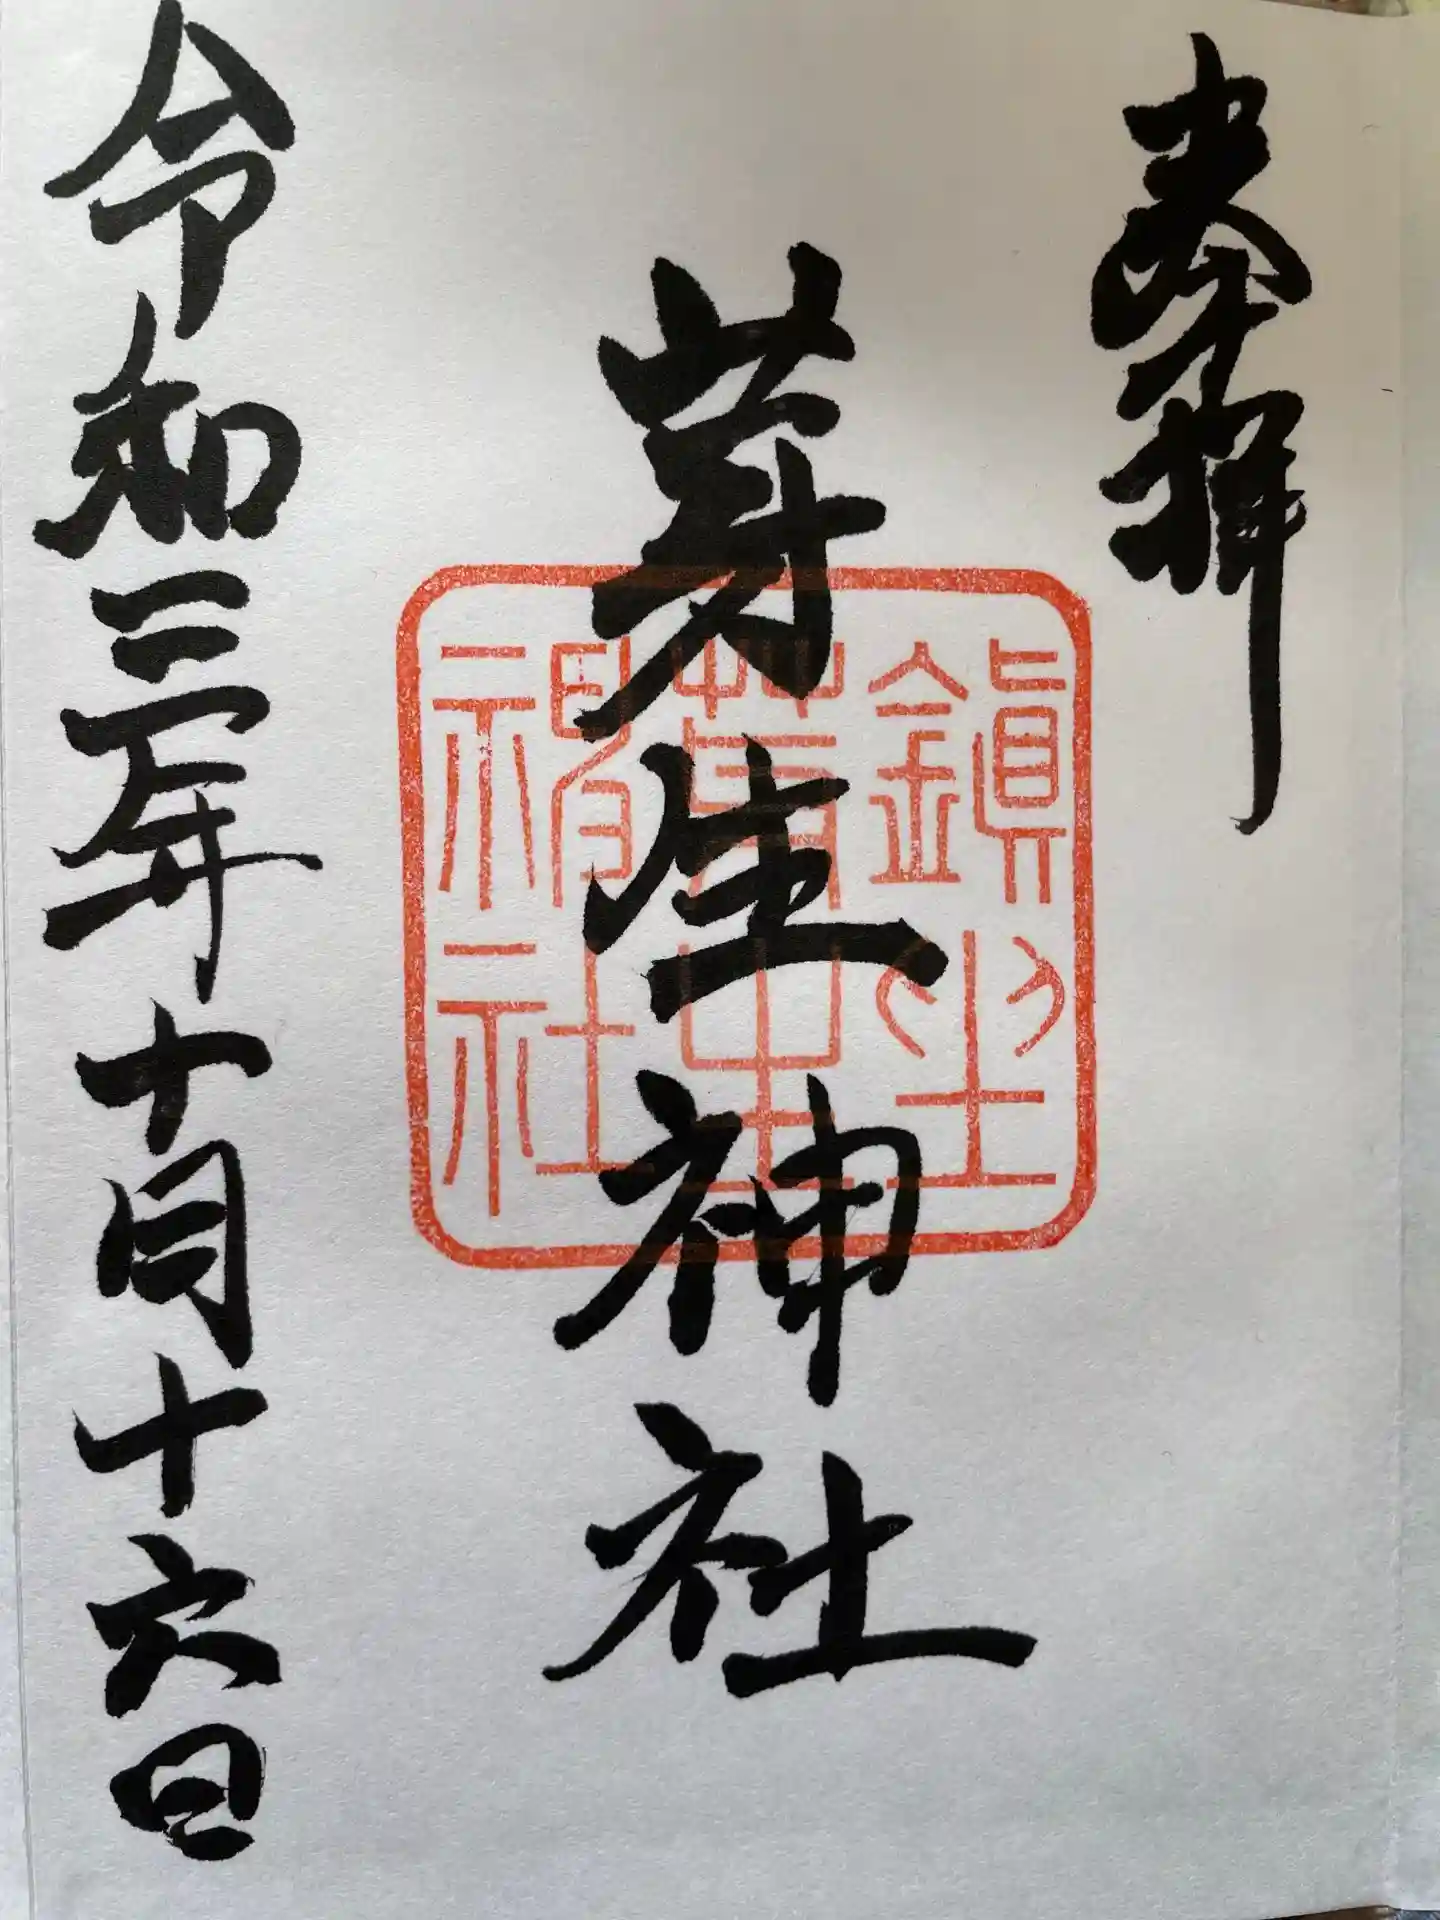 奉拝
芽生神社
令和三年十月十六日
鎮坐
神社